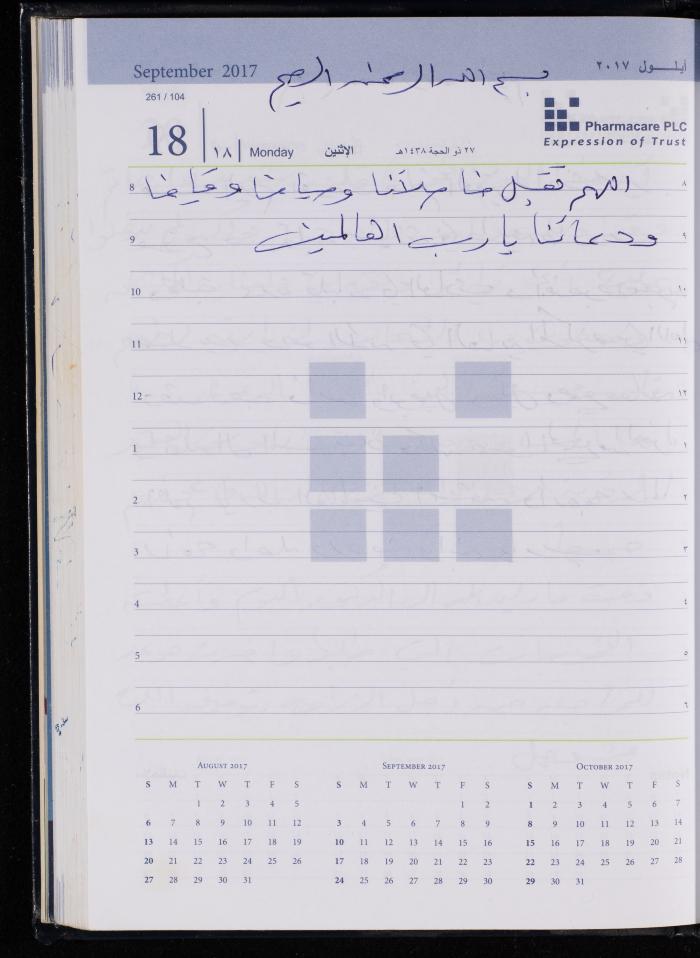 September 2017 بسم الله الرحمن الرحيم أيلـــول ٢٠١٧
261 / 104
18 ١٨ Monday الإثنين ٢٧ ذو الحجة ١٤٣٨هـ
Pharmacare PLC
Expression of Trust
8 اللهم تقبل منا صلاتنا وصيامنا وقيامنا ٨
9 ودعائنا يا رب العالمين ٩
10 ١٠
11 ١١
12 ١٢
1 ١
2 ٢
3 ٣
4 ٤
5 ٥
6 ٦
AUGUST 2017
S M T W T F S
1 2 3 4 5
6 7 8 9 10 11 12
13 14 15 16 17 18 19
20 21 22 23 24 25 26
27 28 29 30 31
SEPTEMBER 2017
S M T W T F S
1 2
3 4 5 6 7 8 9
10 11 12 13 14 15 16
17 18 19 20 21 22 23
24 25 26 27 28 29 30
OCTOBER 2017
S M T W T F S
1 2 3 4 5 6 7
8 9 10 11 12 13 14
15 16 17 18 19 20 21
22 23 24 25 26 27 28
29 30 31